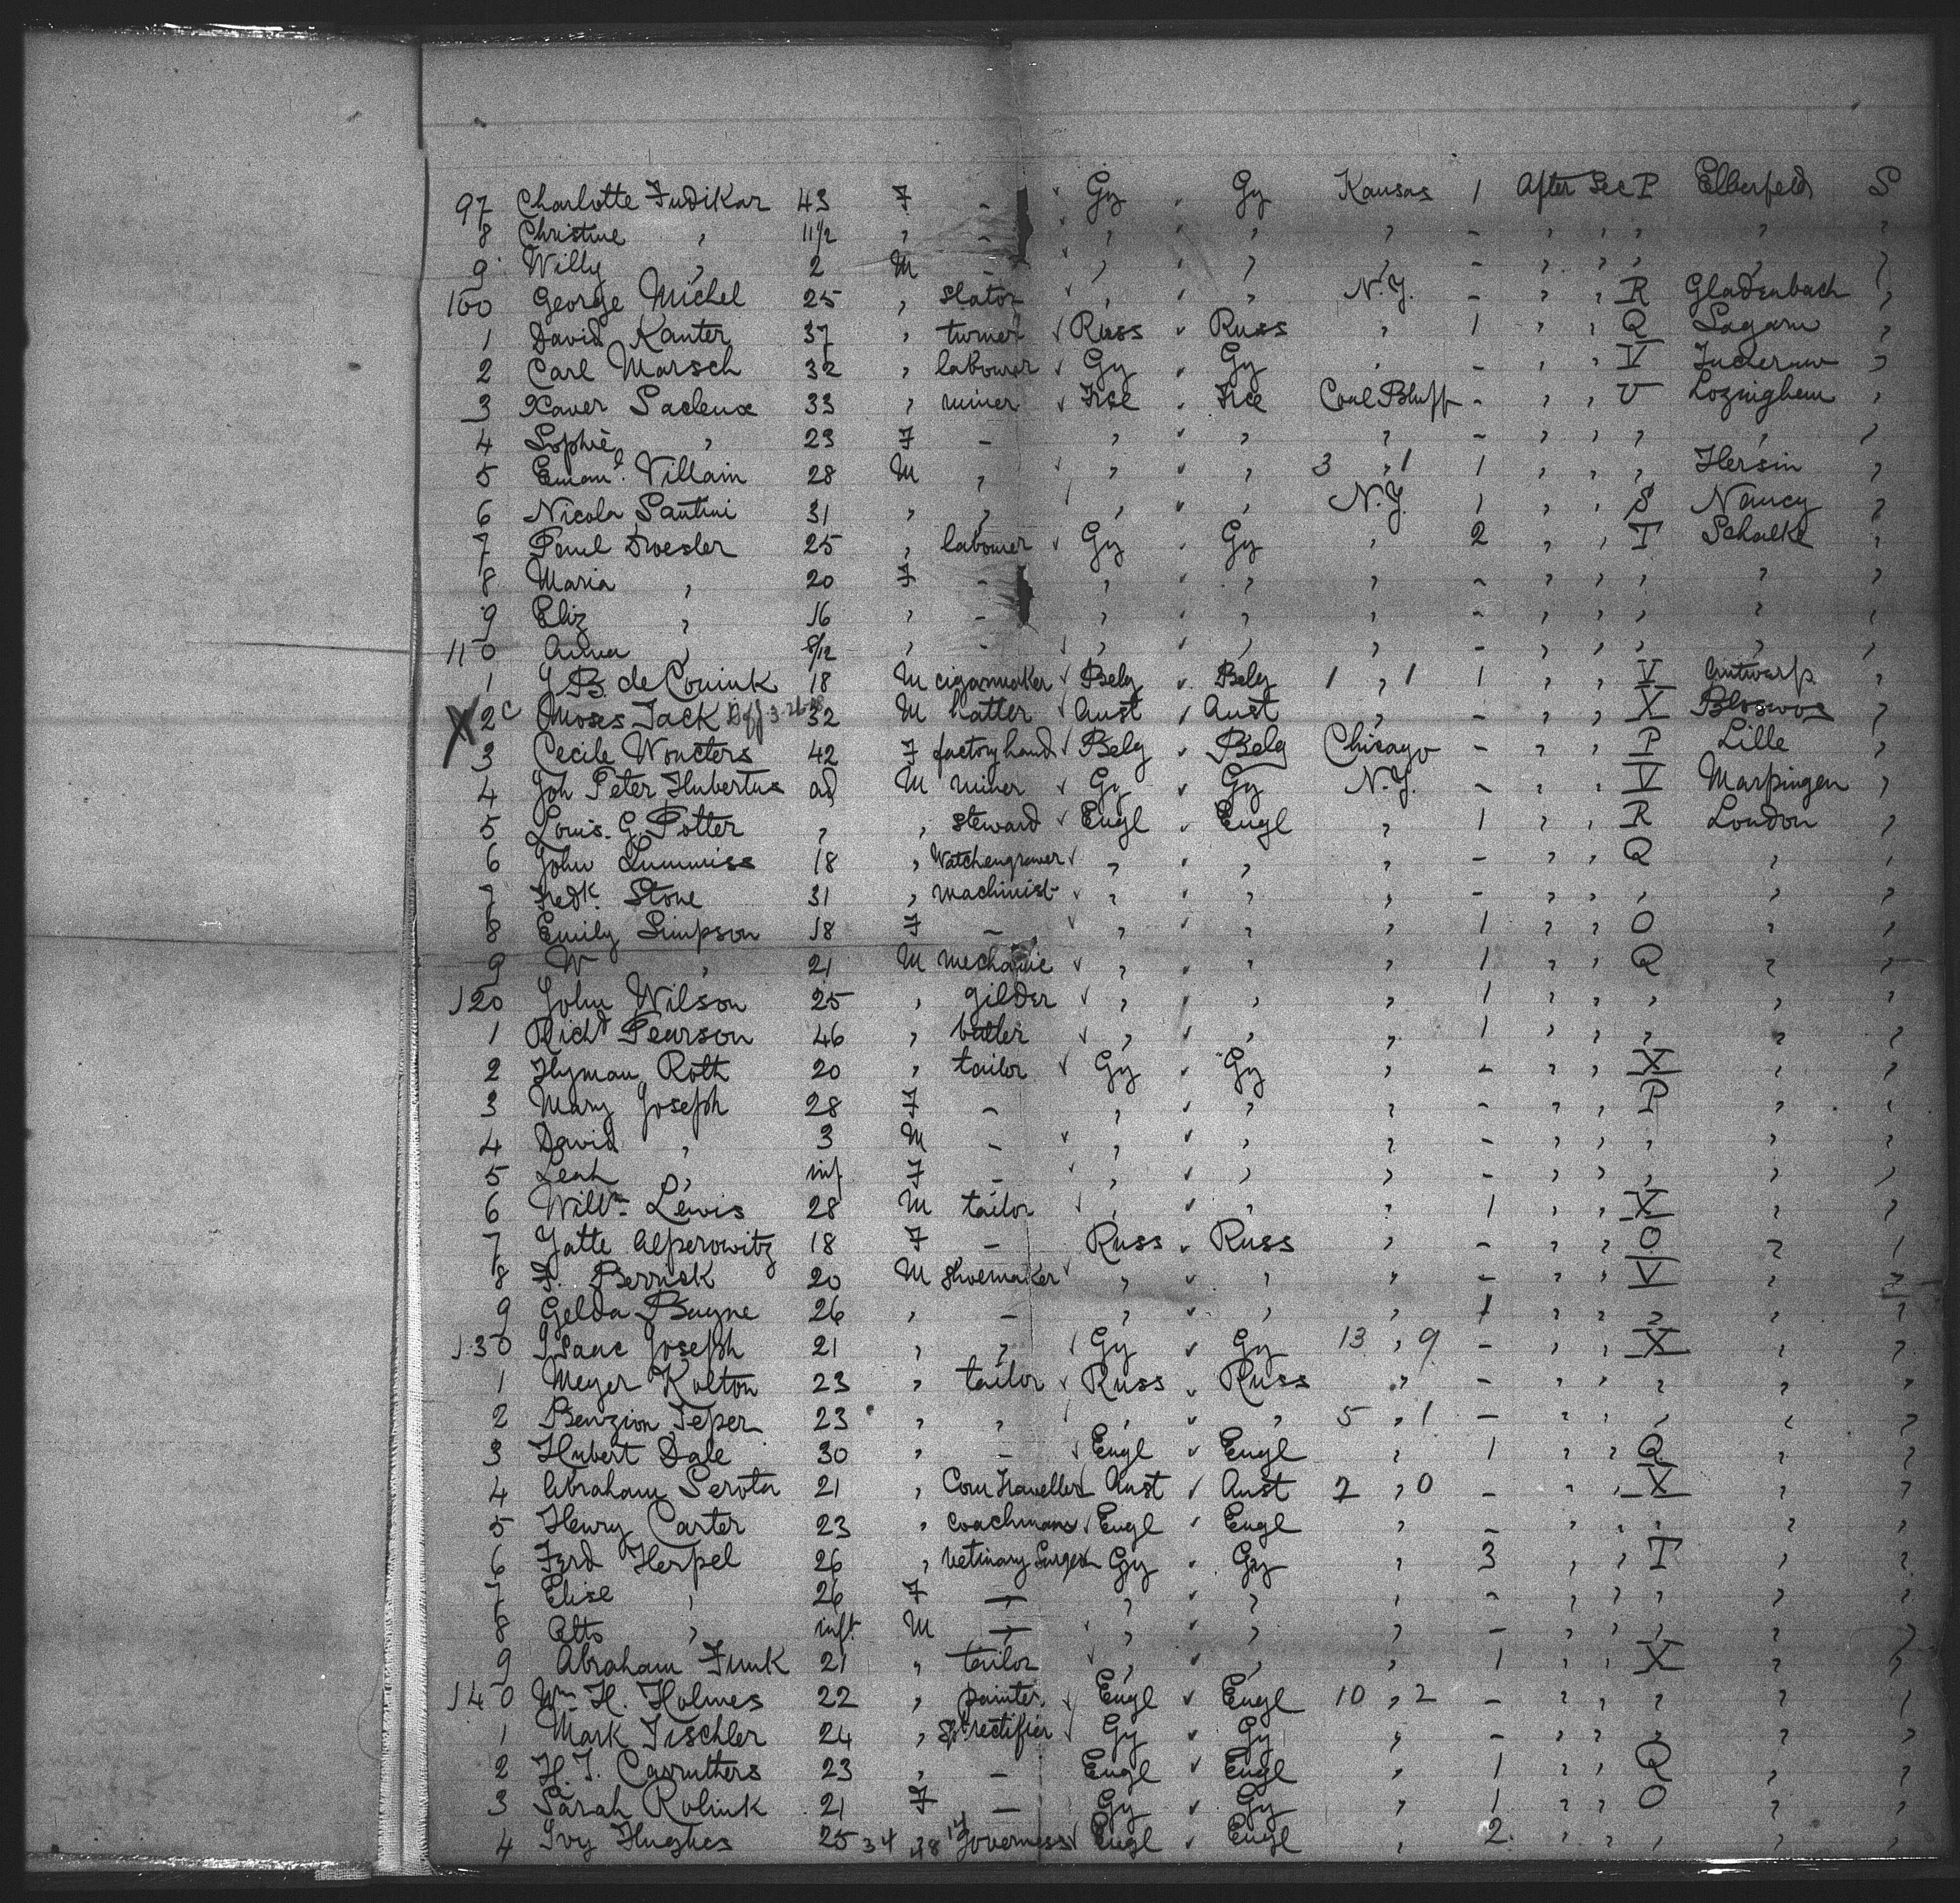 97 Charlotte Fudikar 43 F - Gy Gy Kansas 1 After Sec P Elberfeld S
8 Christine " 11/2 " - " " " - " " " " "
9 Willy " 2 M - " " " - " " " " "
100 George Michel 25 " slator " " N.Y. - " " R Gladenbach "
1 David Kanter 37 " turner Russ Russ " 1 " " Q Sagaru "
2 Carl Marsch 32 " labourer Gy Gy " - " " V "
3 Xaver Sacleux 33 " miner Frce Frce Coal Bluff - " " V Lozinghem "
4 Sophie " 23 F - " " " - " " " " "
5 Emanl. Villain 28 M " " " 3 " 1 1 " " " Hersin "
6 Nicola Santini 31 " " " " N.Y. 1 " " S Nancy "
7 Paul Droesler 25 " labourer Gy Gy " 2 " " T Schalke "
8 Maria " 20 F - " " " - " " " " "
9 Eliz " 16 " - " " " - " " " " "
110 Anna " 8/12 " - " " " - " " " " "
1 J B. de Conink 18 M cigarmaker Belg Belg 1 " 1 1 " " V Antwerp "
X 2 c Moses Jack 32 M hatter Aust Aust " - " " X "
3 Cecile Woucters 42 F factory hand Belg Belg Chicago - " " P Lille "
4 Joh Peter Hubertus ad M miner Gy Gy N.Y. - " " V Marpingen "
5 Louis. G. Potter " " steward Engl Engl " 1 " " R London "
6 John Lummiss 18 " Watchengraver " " " - " " Q " "
7 Fredk. Stone 31 " machinist " " " - " " " " "
8 Emily Simpson 18 F - " " " 1 " " O " "
9 W " 21 M mechanic " " " 1 " " Q " "
120 John Wilson 25 " gilder " " " 1 " " " " "
1 Richd Pearson 46 " butler " " " 1 " " " " "
2 Hyman Roth 20 " tailor Gy Gy " - " " X " "
3 Mary Joseph 28 F - " " " - " " P " "
4 David " 3 M - " " " - " " " " "
5 Leah " inf F - " " " - " " " " "
6 Willm Lewis 28 M tailor " " " 1 " " X " "
7 Yatte Alperowitz 18 F - Russ Russ " - " " O " "
8 Berrick 20 M shoemaker " " " - " " V " "
9 Gelda Bayne 26 " - " " " 1 " " " " "
130 Isaac Joseph 21 " " Gy Gy 13 " 9 - " " X " "
1 Meyer Kolton 23 " tailor Russ Russ " - " " " " "
2 Benzion Teper 23 " " " " 5 " 1 - " " " " "
3 Hubert Dale 30 " - Engl Engl " 1 " " Q " "
4 Abraham Serota 21 " Com Traveller Aust Aust 2 " 0 - " " X " "
5 Henry Carter 23 " coachman Engl Engl " - " " " " "
6 Ferd Herpel 26 " Vetinary Surgeon Gy Gy " 3 " " T " "
7 Elise " 26 F - " " " - " " " " "
8 Otto " inft M - " " " - " " " " "
9 Abraham Funk 21 " tailor " " " 1 " " X " "
140 Wm H. Holmes 22 " painter Engl Engl 10 " 2 - " " " " "
1 Mark Tischler 24 " rectifier Gy Gy " - " " " " "
2 H. T. Carruthers 23 " - Engl Engl " 1 " " Q " "
3 Sarah Rolink 21 F - Gy Gy " 1 " " O " "
4 Ivy Hughes 25 34 " 38 14 Governess Engl Engl " 2 " " " " "